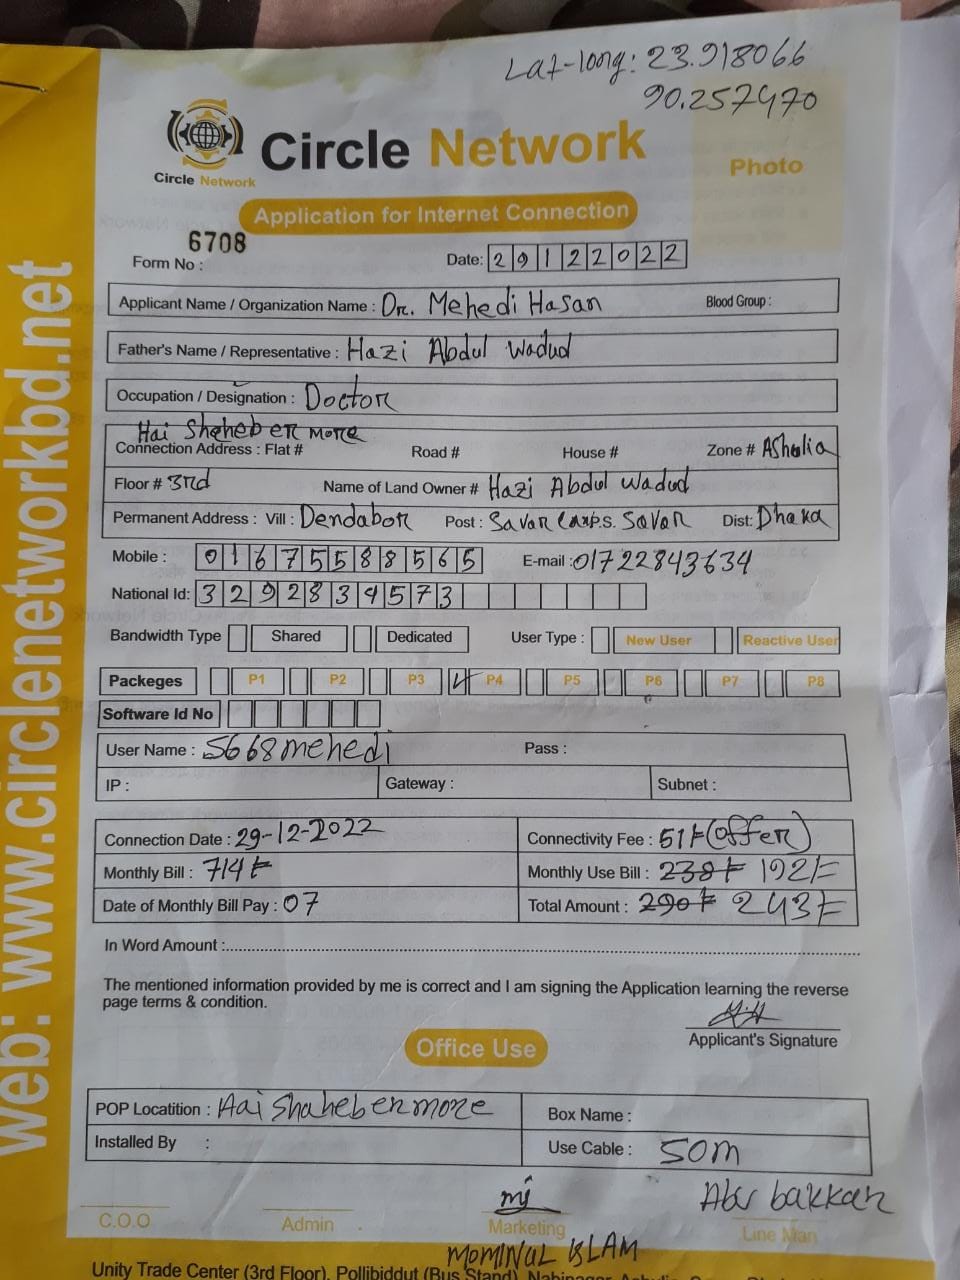 Lat-long: 23.918066
90.257470
Circle Network
Circle Network
Photo
Application for Internet Connection
6708
Form No :
Date: 29122022
Applicant Name / Organization Name : Dr. Mehedi Hasan Blood Group :
Father's Name / Representative : Hazi Abdul Wadud
Occupation / Designation : Doctor
Hai Shaheber more
Connection Address : Flat # Road # House # Zone # Ashulia
Floor # 3rd Name of Land Owner # Hazi Abdul Wadud
Permanent Address : Vill : Dendabor Post : Savar Cant P.S. Savar Dist: Dhaka
Mobile : 01675588565 E-mail : 01722843634
National Id: 3292834573
Bandwidth Type Shared Dedicated User Type : New User Reactive User
Packeges P1 P2 P3 P4 P5 P6 P7 P8
Software Id No
User Name : 5668mehedi Pass :
IP : Gateway : Subnet :
Connection Date : 29-12-2022 Connectivity Fee : 51/= (offer)
Monthly Bill : 714/= Monthly Use Bill : 238/= 192/=
Date of Monthly Bill Pay : 07 Total Amount : 290/= 243/=
In Word Amount :
The mentioned information provided by me is correct and I am signing the Application learning the reverse
page terms & condition.
Applicant's Signature
Office Use
POP Locatition : Hai Shaheber more Box Name :
Installed By : Use Cable : 50m
mj Abu bakkar
C.O.O Admin Marketing Line Man
MOMINUL ISLAM
Unity Trade Center (3rd Floor), Pollibiddut (Bus Stand),
web: www.circlenetworkbd.net